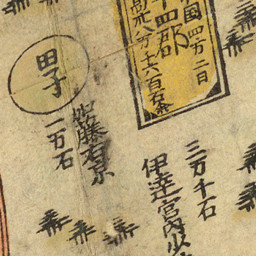 国 四百二日
十四郡
高卅八万十六百石余
三万千石
伊達宮内少
加藤右京
田子
二万石